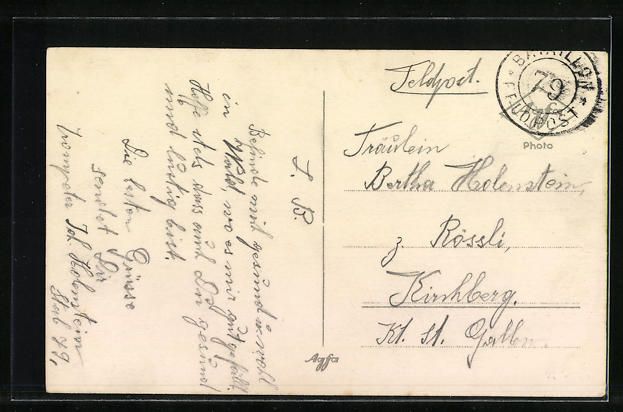 L. B.
Befinde mich gesund u. wohl
in Wald, wo es mir gut gefällt.
Hoffe stets dass auch Du gesund
und lustig bist.
Die besten Grüsse
sendet Dir
Trompeter Joh. Holenstein
Stab 79,
Feldpost.
BATAILLON
79
FELDPOST
Photo
Fräulein
Bertha Holenstein,
z. Rössli,
Kirchberg.
Kt. St. Gallen.
Agfa